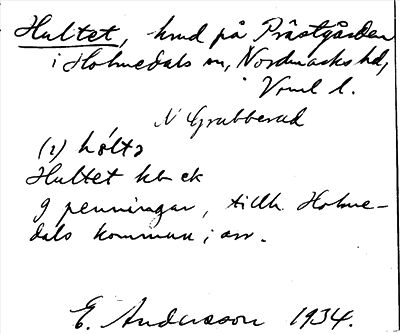 Hultet, hmd på Prästgården
i Holmedals sn, Nordmarks hd,
Vrml l.
N Grubberud
(1) hólt
Hultet kb ek
9 penningar, tillh. Holme-
dals kommun; arr.
E. Andersson 1934.